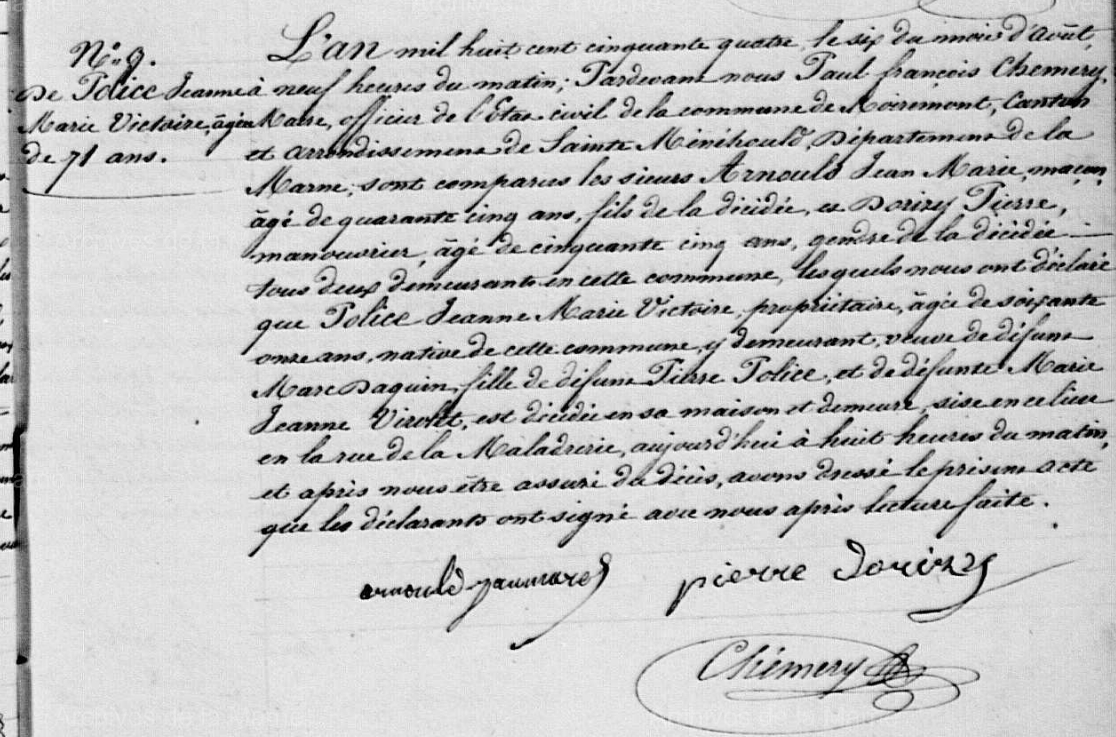 N°. 9.
De Police Jeanne
Marie Victoire, âgée
de 71 ans.
L'an mil huit cent cinquante quatre, le six du mois d'Août,
à neuf heures du matin; Pardevant nous Paul françois Chemery,
Maire, officier de l'Etat civil de la commune de Moiremont, Canton
et arrondissement de Sainte Ménéhould, Département de la
Marne; sont comparus les sieurs Arnould Jean Marie, maçon,
âgé de quarante cinq ans, fils de la décédée, et Dorizy Pierre,
manouvrier, âgé de cinquante cinq ans, gendre de la décédée
tous deux demeurants en cette commune, lesquels nous ont déclaré
que Police Jeanne Marie Victoire, propriétaire, âgée de soixante
onze ans, native de cette commune, y demeurant, veuve de défunt
Marc Daquin, fille de défunt Pierre Police, et de défunte Marie
Jeanne Virolet, est décédée en sa maison et demeure, sise en ce lieu
en la rue de la Maladrerie, aujourd'hui à huit heures du matin,
et après nous être assuré du décès, avons dressé le présent acte
que les déclarants ont signé avec nous après lecture faite.
arnould pierre Dorizy
Chémery